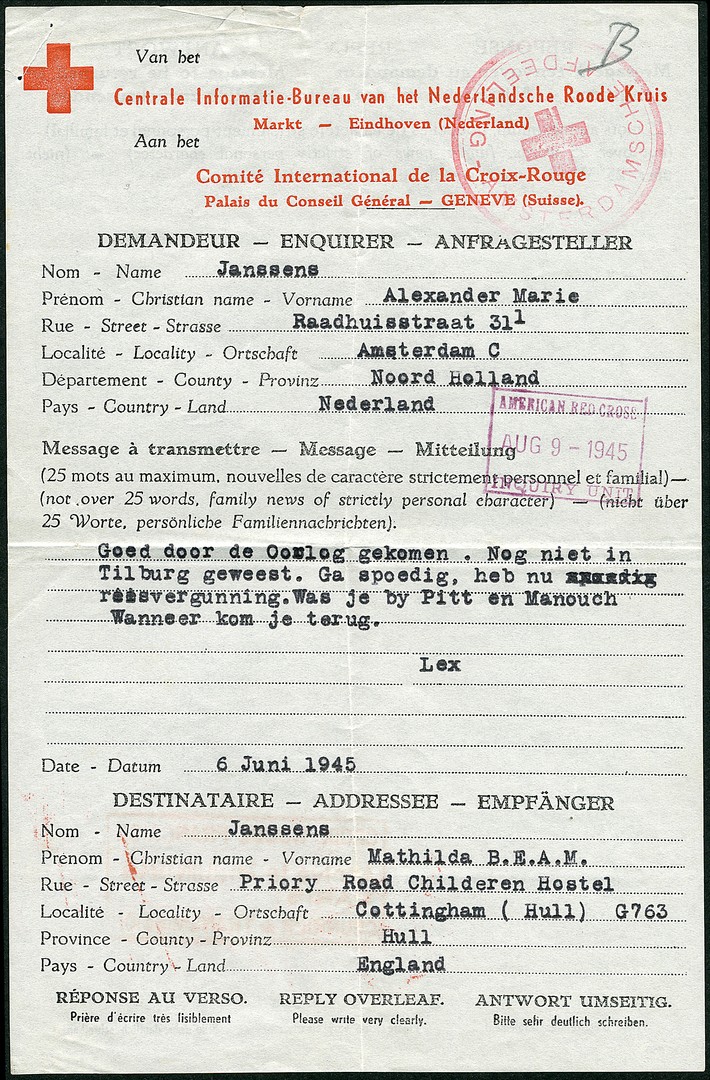 B
Van het
Centrale Informatie-Bureau van het Nederlandsche Roode Kruis
Markt — Eindhoven (Nederland)
Aan het
Comité International de la Croix-Rouge
Palais du Conseil Général — GENEVE (Suisse).
AFDEELING AMSTERDAMSCHE
DEMANDEUR — ENQUIRER — ANFRAGESTELLER
Nom - Name Janssens
Prénom - Christian name - Vorname Alexander Marie
Rue - Street - Strasse Raadhuisstraat 31¹
Localité - Locality - Ortschaft Amsterdam C
Département - County - Provinz Noord Holland
Pays - Country - Land Nederland
AMERICAN RED CROSS
AUG 9 - 1945
INQUIRY UNIT
Message à transmettre — Message — Mitteilung
(25 mots au maximum, nouvelles de caractère strictement personnel et familial) —
(not over 25 words, family news of strictly personal character) — (nicht über
25 Worte, persönliche Familiennachrichten).
Goed door de Oorlog gekomen . Nog niet in
Tilburg geweest. Ga spoedig, heb nu
reisvergunning.Was je by Pitt en Manouch
Wanneer kom je terug.
Lex
Date - Datum 6 Juni 1945
DESTINATAIRE — ADDRESSEE — EMPFÄNGER
Nom - Name Janssens
Prenom - Christian name - Vorname Mathilda B.E.A.M.
Rue - Street - Strasse Priory Road Childeren Hostel
Localité - Locality - Ortschaft Cottingham ( Hull) G763
Province - County - Provinz Hull
Pays - Country - Land England
RÉPONSE AU VERSO. REPLY OVERLEAF. ANTWORT UMSEITIG.
Prière d'écrire très lisiblement Please write very clearly. Bitte sehr deutlich schreiben.